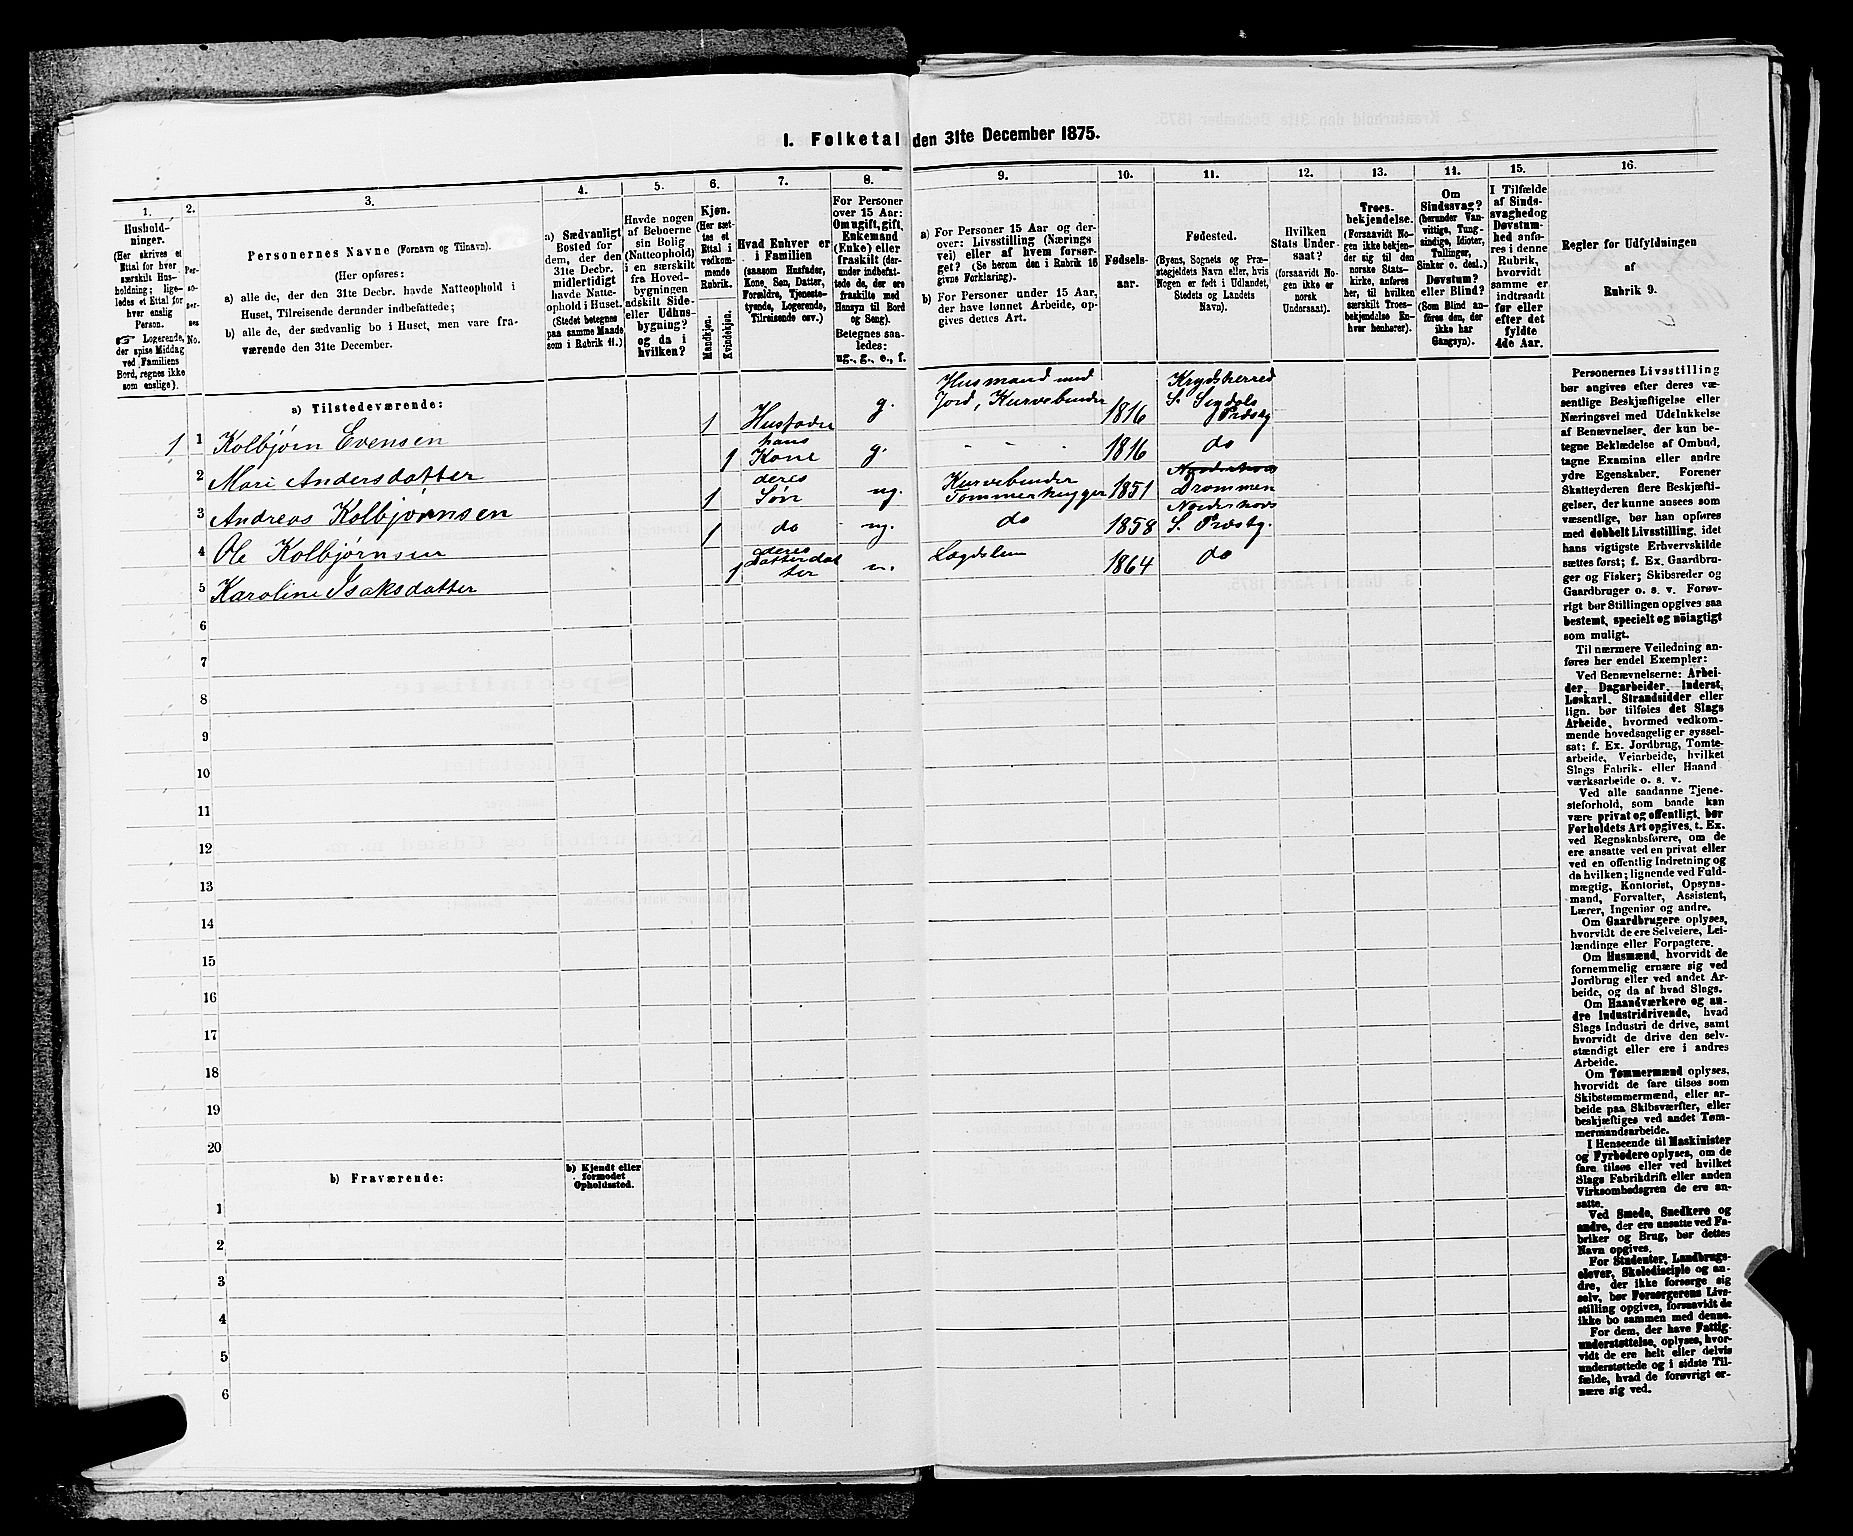 I. Folketal den 31te December 1875.
1.
Hushold-
ninger.
(Her skrives et
Ettal for hver
særskilt Hus-
holdning; lige-
ledes et Ettal for
hver enslig
Person.
☞ Logerende,
der spise Middag
ved Familiens
Bord, regnes ikke
som enslige).
2.
Per-
so-
per-
nes
No.
3.
Personernes Navne (Fornavn og Tilnavn).
(Her opføres:
a) alle de, der den 31te Decbr. havde Natteophold i
Huset, Tilreisende derunder indbefattede;
b) alle de, der sædvanlig bo i Huset, men vare fra-
værende den 31te December.
4.
a) Sædvanligt
Bosted for
dem, der den
31te Decbr.
midlertidigt
havde Natte-
ophold i Huset.
(Stedet betegnes
paa samme Maade
som i Rubrik 11.)
5.
Havde nogen
af Beboerne
sin Bolig
(Natteophold)
i en særskilt
fra Hoved-
bygningen
adskilt Side-
eller Udhus-
bygning?
og da i
hvilken?
6.
Kjøn.
(Her sæt-
tes et
Ettal i
vedkom-
mende
Rubrik.
Mandkjøn.
Kvindekjøn.
7.
Hvad Enhver er
i Familien
(saasom Husfader,
Kone, Søn, Datter,
Forældre, Tjeneste-
tyende, Logerende,
Tilreisende osv.)
8.
For Personer
over 15 Aar:
Om ugift, gift,
Enkemand
(Enke) eller
fraskilt (der-
under indbefat-
tede de, der ere
fraskilte med
Hensyn til Bord
og Seng).
Betegnes saa-
ledes:
ug., g., e., f.
9.
a) For Personer 15 Aar og der-
over: Livsstilling (Nærings-
vei) eller af hvem forsør-
get? (Se herom den i Rubrik 16
givne Forklaring).
b) For Personer under 15 Aar,
der have lønnet Arbeide, op-
gives dettes Art.
10.
Fødsels-
aar.
11.
Fødested.
(Byens, Sognets og Præ-
stegjeldets Navn eller, hvis
Nogen er født i Udlandet,
Stedets og Landets
Navn).
12.
Hvilken
Stats Under-
saat?
(forsaavidt No-
gen ikke er
norsk
Undersaat).
13.
Troes-
bekjendelse.
(Forsaavidt No-
gen ikke bekjen-
der sig til den
norske Stats-
kirke, anføres
her, til hvilken
særskilt Troes-
bekjendelse En-
hver henhører).
14.
Om
Sindssvag?
(herunder Van-
vittige, Tung-
sindige, Idioter,
Tullinger,
Sinker o. desl.)
Døvstum?
eller Blind?
(Som Blind an-
føres den, der
ikke har
Gangsyn).
15.
I Tilfælde
af Sinds-
svaghed og
Døvstum-
hed anfø-
res i denne
Rubrik,
hvorvidt
samme er
indtraadt
før eller
efter det
fyldte
4de Aar.
16.
Regler for Udfyldningen
af
Rubrik 9.
a) Tilstedeværende:
1 1 Kolbjørn Evensen 1 Husfader g. Husmand med Jord, Kurvebinder 1816 Krydsherred S. Sigdals Præstg
2 Mari Andersdatter 1 hans Kone g. - - 1816 do
3 Andreas Kolbjørnsen 1 deres Søn ug. Kurvebinder Tømmerhugger 1851 Drammen
4 Ole Kolbjørnsen 1 do ug. do 1858 Norderhovs S. Præstg.
5 Karoline Isaksdatter 1 deres Datterdatter u. Lægdslem 1864 do
6
7
8
9
10
11
12
13
14
15
16
17
18
19
20
b) Fraværende:
b) Kjendt eller
formodet
Opholdssted.
1
2
3
4
5
6
Personernes Livsstilling
bør angives efter deres væ-
sentlige Beskjæftigelse eller
Næringsvei med Udelukkelse
af Benævnelser, der kun be-
tegne Beklædelse af Ombud,
tagne Examina eller andre
ydre Egenskaber. Forener
Skatteyderen flere Beskjæfti-
gelser, der kunne ansees som
væsentlige, bør han opføres
med dobbelt Livsstilling, idet
hans vigtigste Erhvervskilde
sættes først; f. Ex. Gaardbru-
ger og Fisker; Skibsreder og
Gaardbruger o. s. v. Forøv-
rigt bør Stillingen opgives saa
bestemt, specielt og nöiagtigt
som muligt.
Til nærmere Veiledning an-
føres her endel Exempler:
Ved Benævnelserne: Arbei-
der, Dagarbeider, Inderst,
Løskarl, Strandsidder eller
lign. bør tilføies det Slags
Arbeide, hvormed vedkom-
mende hovedsagelig er syssel-
sat; f. Ex. Jordbrug, Tomte-
arbeide, Veiarbeide, hvilket
Slags Fabrik- eller Haand
værksarbeide o. s. v.
Ved alle saadanne Tjene-
steforhold, som baade kan
være privat og offentligt, bør
Forholdets Art opgives, t. Ex.
ved Regnskabsførere, om de
ere ansatte ved en privat eller
ved en offentlig Indretning og
da hvilken; lignende ved Fuld-
mægtig, Kontorist, Opsyns-
mand, Forvalter, Assistent,
Lærer, Ingeniør og andre.
Om Gaardbrugere oplyses,
hvorvidt de ere Selveiere, Lei-
lændinge eller Forpagtere.
Om Husmænd, hvorvidt de
fornemmelig ernære sig ved
Jordbrug eller ved andet Ar-
beide, og da af hvad Slags.
Om Haandværkere og an-
dre Industridrivende, hvad
Slags Industri de drive, samt
hvorvidt de drive den selv-
stændigt eller ere i andres
Arbeide.
Om Tømmermænd oplyses,
hvorvidt de fare tilsøs som
Skibstømmermænd, eller ar-
beide paa Skibsværfter, eller
beskjæftiges ved andet Tøm-
mermandsarbeide.
I Henseende til Maskinister
og Fyrbødere oplyses, om de
fare tilsøs eller ved hvilket
Slags Fabrikdrift eller anden
Virksomhedsgren de ere an-
satte.
Ved Smede, Snedkere og
andre, der ere ansatte ved Fa-
briker og Brug, bør dettes
Navn opgives.
For Studenter, Landbrugs-
elever, Skoledisciple og an-
dre, der ikke forsørge sig
selv, bør Forsørgerens Livs-
stilling opgives, forsaavidt de
ikke bo sammen med denne.
For dem, der have Fattig-
understøttelse, oplyses, hvor-
vidt de ere helt eller delvis
understøttede og i sidste Til-
fælde, hvad de forøvrigt er-
nære sig ved.